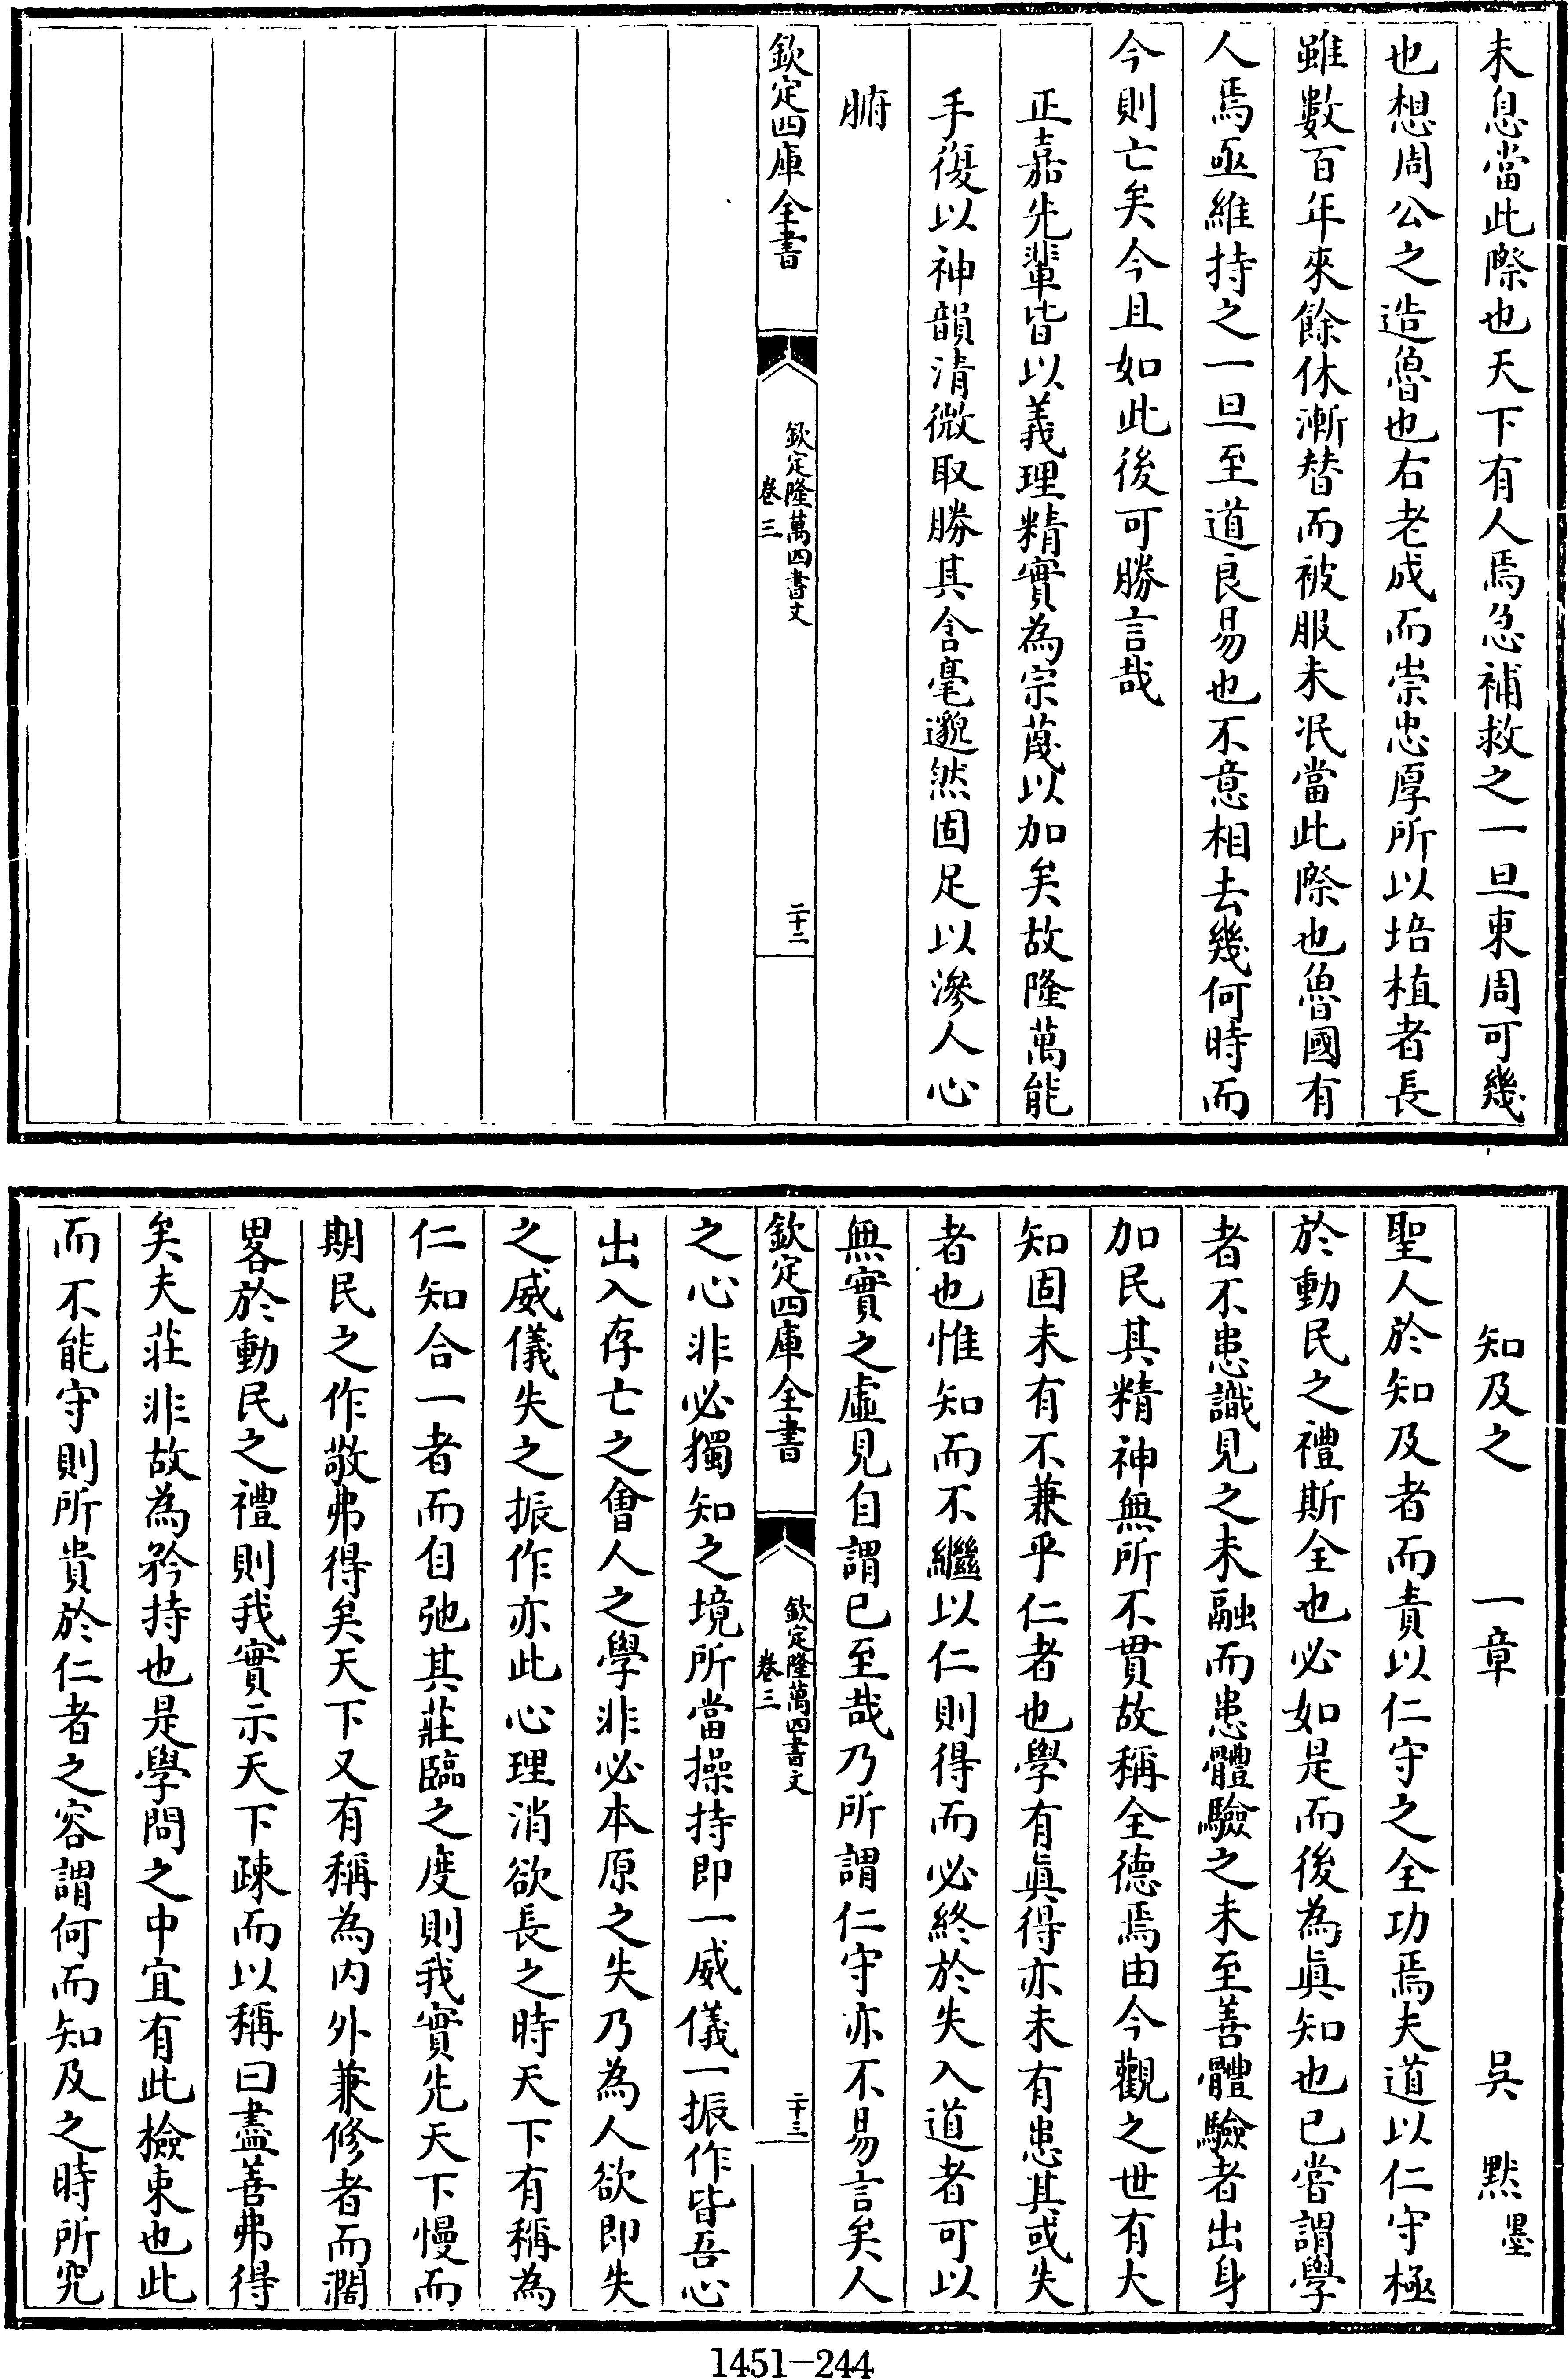 未息當此際也天下有人焉急補救之一旦東周可幾
也想周公之造魯也右老成而崇忠厚所以培植者長
雖數百年來餘休漸替而被服未泯當此際也魯國有
人焉亟維持之一旦至道良易也不意相去幾何時而
今則亡矣今且如此後可勝言哉
正嘉先輩皆以義理精實為宗蔑以加矣故隆萬能
手復以神韻清微取勝其含毫邈然固足以滲人心
腑
欽定四庫全書
欽定隆萬四書文
卷三
二十二
知及之 一章 吳 默 墨
聖人於知及者而責以仁守之全功焉夫道以仁守極
於動民之禮斯全也必如是而後為眞知也已嘗謂學
者不患識見之未融而患體驗之未至善體驗者出身
加民其精神無所不貫故稱全德焉由今觀之世有大
知固未有不兼乎仁者也學有眞得亦未有患其或失
者也惟知而不繼以仁則得而必終於失入道者可以
無實之虛見自謂已至哉乃所謂仁守亦不易言矣人
欽定四庫全書
欽定隆萬四書文
卷三
二十三
之心非必獨知之境所當操持即一威儀一振作皆吾心
出入存亡之會人之學非必本原之失乃為人欲即失
之威儀失之振作亦此心理消欲長之時天下有稱為
仁知合一者而自弛其莊臨之度則我實先天下慢而
期民之作敬弗得矣天下又有稱為內外兼修者而濶
畧於動民之禮則我實示天下疎而以稱曰盡善弗得
矣夫莊非故為矜持也是學問之中宜有此檢束也此
而不能守則所貴於仁者之容謂何而知及之時所究
1451-244